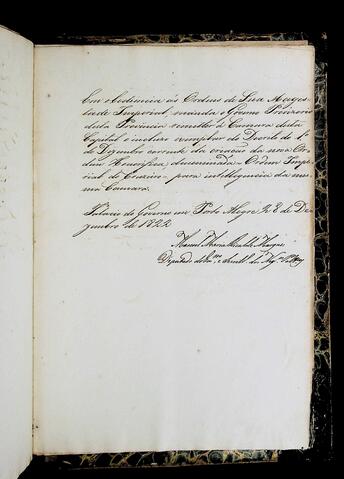 Em obediencia ás Ordens de Sua Mages-
tade Imperial, manda o Governo Provisorio
desta Provincia remetter á Camara desta
Capital o incluso exemplar do Decreto do 1º
de Dezembro corrente da criação da nova Or-
dem Honorifica denominada Ordem Impe-
rial do Cruzeiro para intelligencia da mes-
ma Camara.
Palacio do Governo em Porto Alegre 28 de De-
zembro de 1822
Manoel Maria Marques
Deputado do